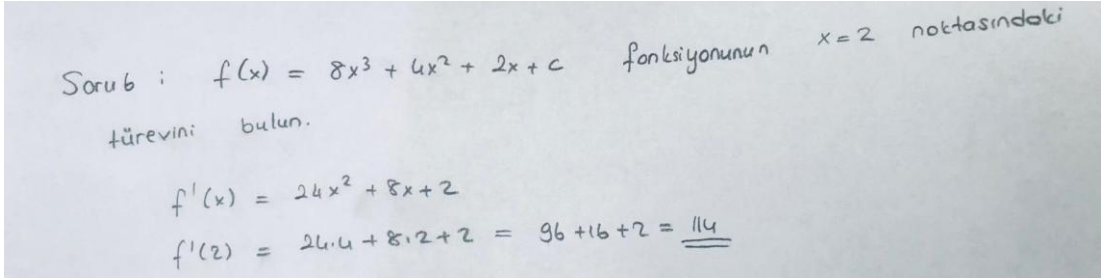 Soru 6 : f(x) = 8x³ + 4x² + 2x + c fonksiyonunun x = 2 noktasındaki
türevini bulun.
f'(x) = 24x² + 8x + 2
f'(2) = 24.4 + 8.2 + 2 = 96 + 16 + 2 = 114